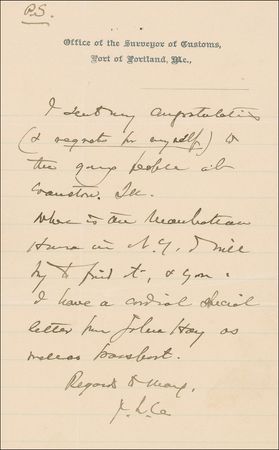 P.S.
Office of the Surveyor of Customs,
Port of Portland, Me.,
I sent my congratulations
(& regrets for myself) to
the young people at
Evanston. Ill.
Where is the Manhattan
in N.Y. I will
try to find it, & you.
I have a cordial special
letter from John Hay as
well as passport.
Regards to Mary,
J. L. C.